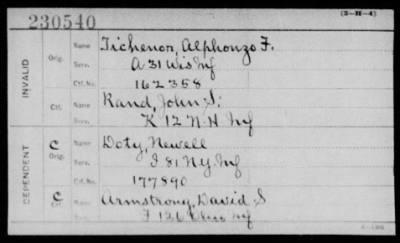 230540
(3-H-4)
INVALID
Orig.
Name Tichenor, Alphonzo F.
Serv. A 31 Wis Inf
Ctf. No. 162358
Ctf.
Name Rand, John S.
Serv. K 12 N.H. Inf
DEPENDENT
C
Orig.
Name Doty, Newell
Serv. I 81 N.Y. Inf
Ctf. No. 177890
C
Ctf.
Name Armstrong, David S
Serv. 126 Ohio Inf